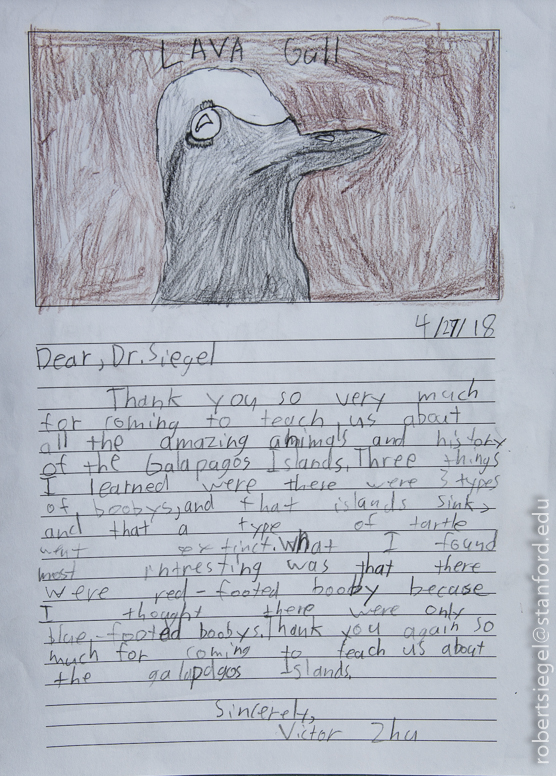 LAVA Gull
4/27/18
Dear, Dr. Siegel
Thank you so very much
for coming to teach us about
all the amazing ahimals and history
of the Galapagos Islands. Three things
I learned were there were 3 types
of, boobys, and that islands sink,
and that a type of turtle
went extinct. What I found
most intresting was that there
were red-footed booby becase
I thought there were only
blue-footed boobys. Thank you again so
much for coming to teach us about
the galapagos Islands.
Sincerely,
Victor Zhu
robertsiegel@stanford.edu